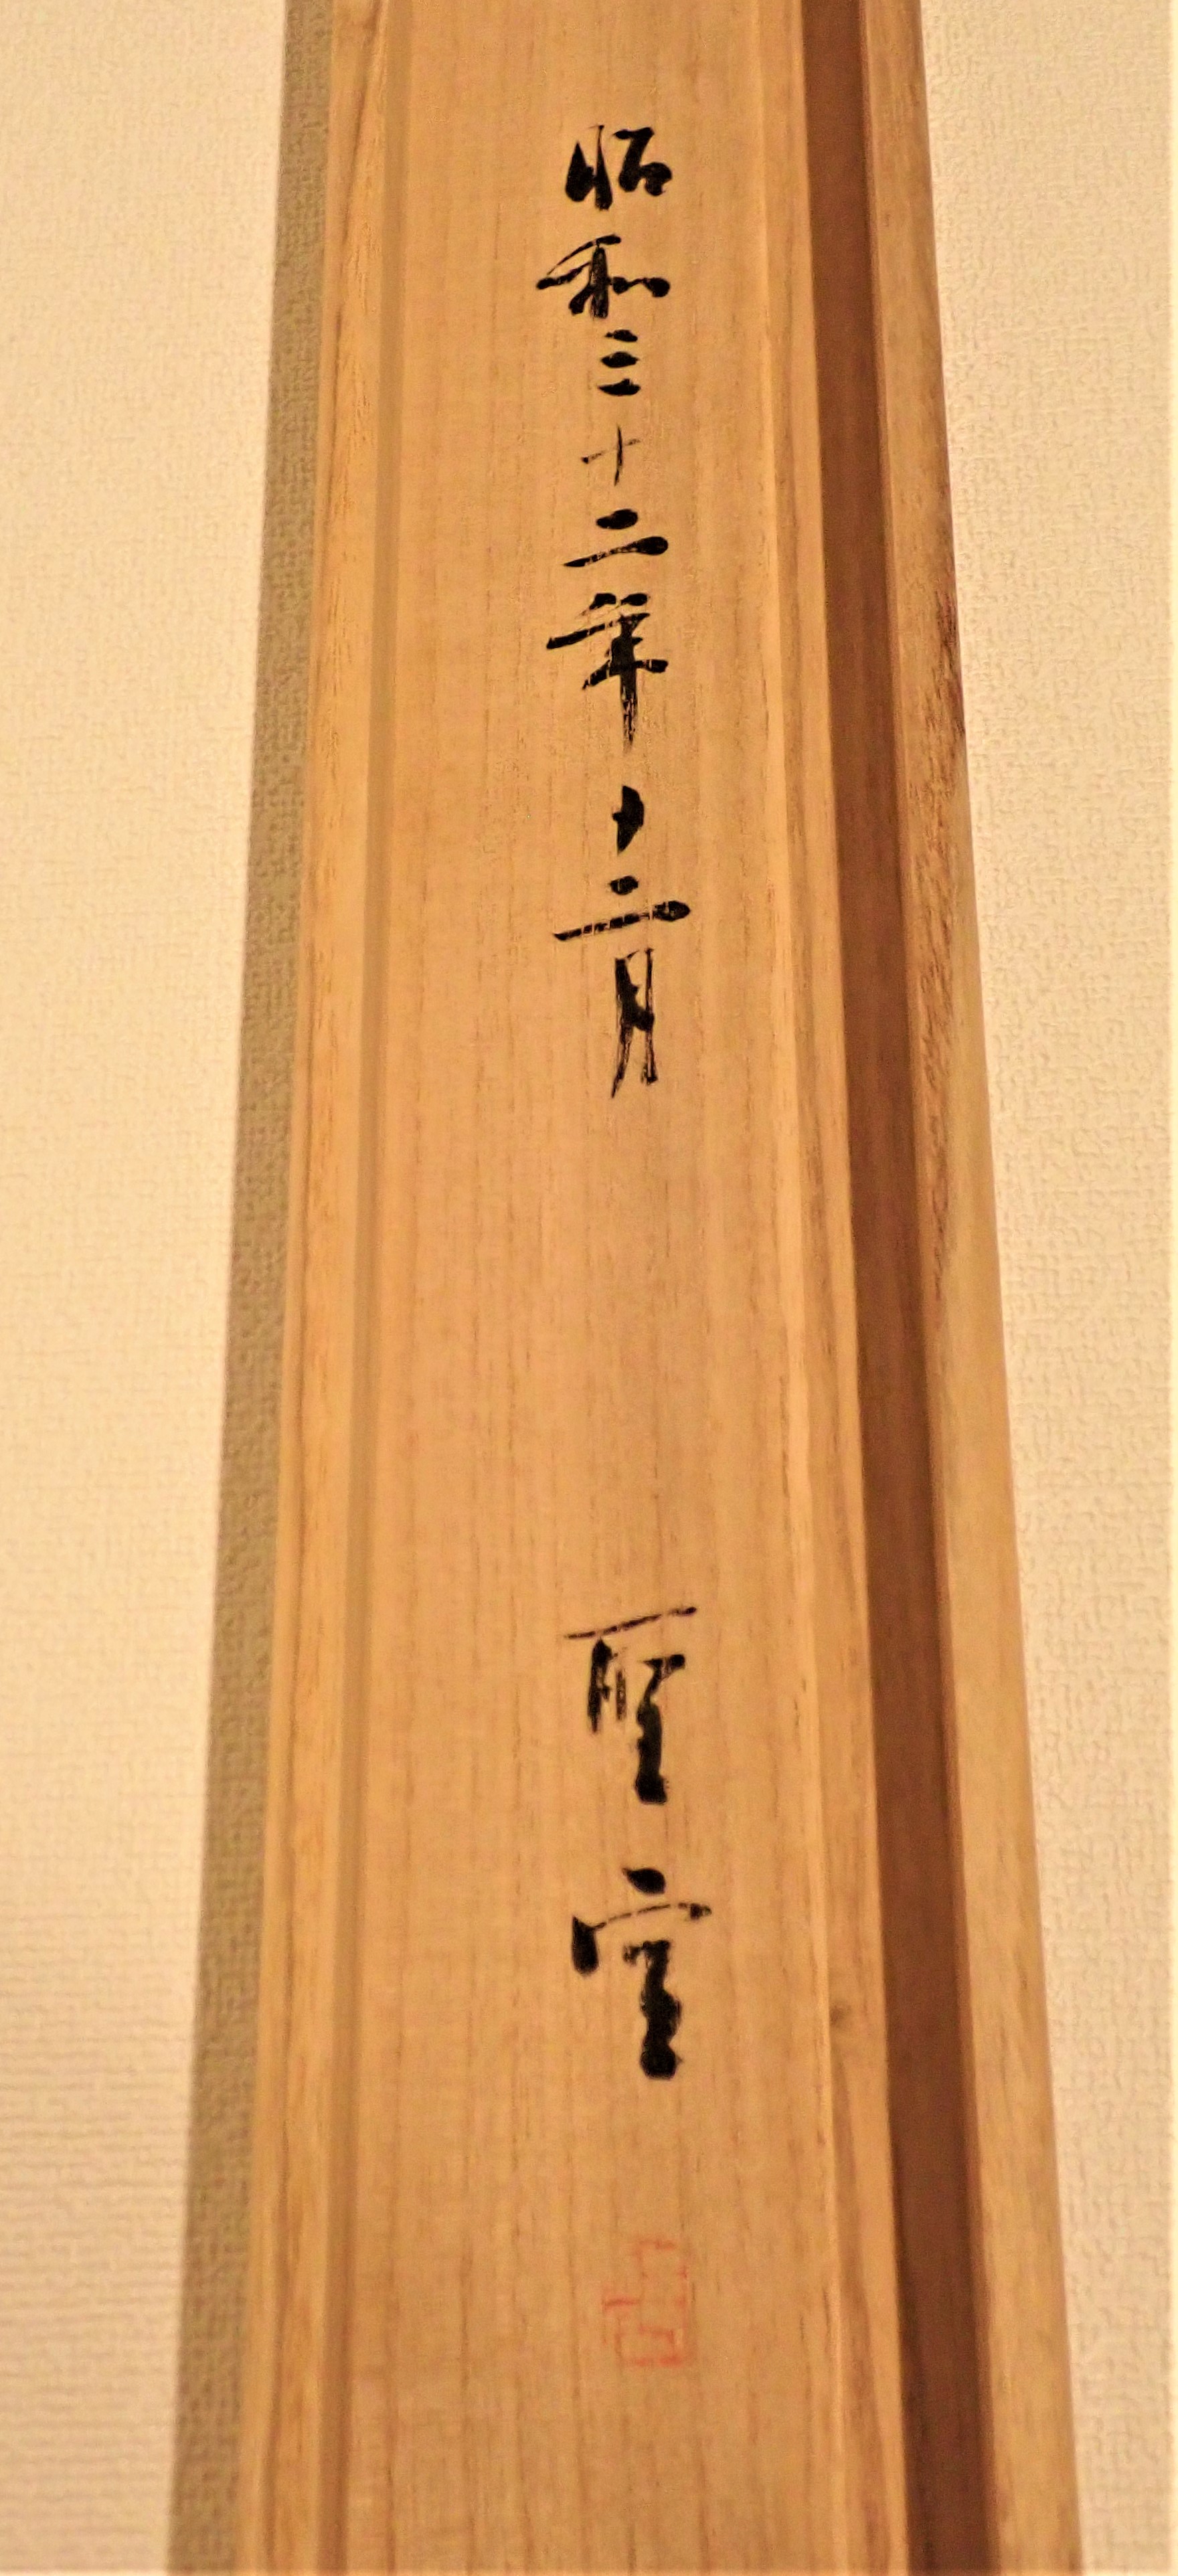 昭和三十二年十二月
聖空